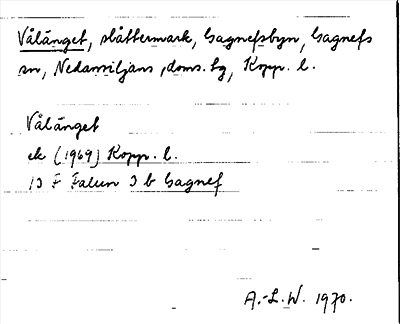 Vålänget, slåttermark, Gagnefsbyn, Gagnefs
sn, Nedansiljans, doms. lg, Kopp. l.
Vålänget
ek (1969) Kopp. l.
13 F Falun 3 b Gagnef
A.-L.W. 1970.